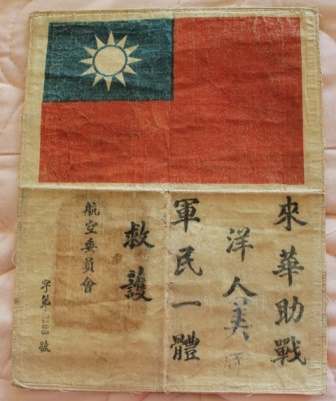 來華助戰
洋人美
軍民一體
救護
航空委員會
字第號